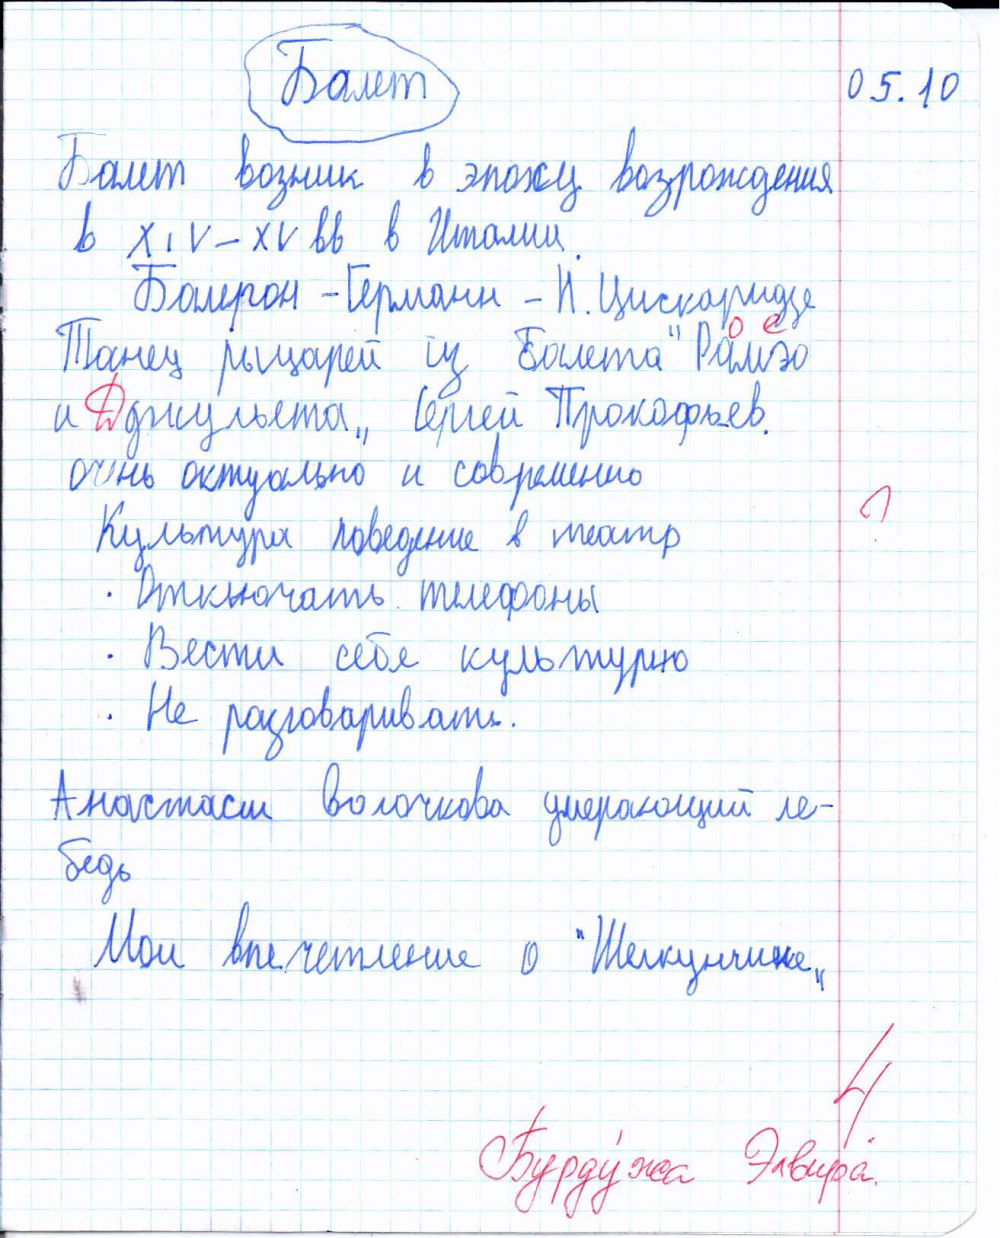 Балет
05.10
Балет возник в эпоху возрождения
в XIV-XV вв в Италии.
Балерон - Германн - Н. Цискаридзе
Танец рыцарей из балета "Рамэо
о е
и Дджульета„ Сергей Прокофьев.
очнь актуально и современно
Культура поведение в театр
?
· Отключать телефоны
· Вести себя культурно
· Не разговаривать.
Анастаси Волочкова умерающий ле-
бедь
Мои впечетление о "Шелкунчике„
4
Бурдужа Элвира.